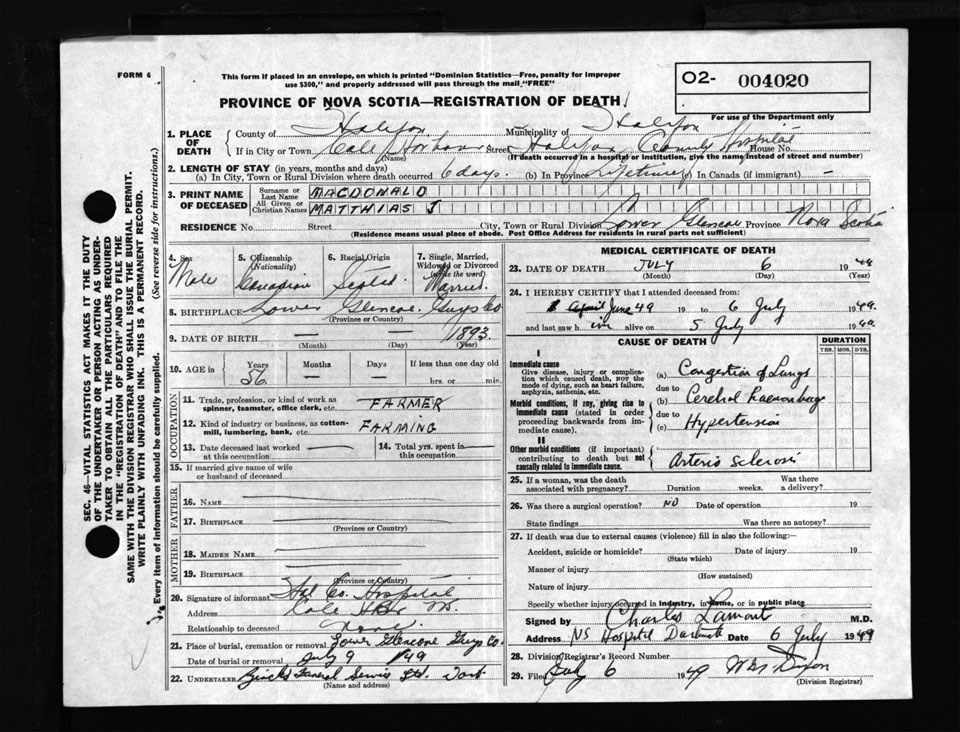 FORM 6
This form if placed in an envelope, on which is printed "Dominion Statistics—Free, penalty for improper
use $300," and properly addressed will pass through the mail "FREE"
O2- 004020
For use of the Department only
PROVINCE OF NOVA SCOTIA—REGISTRATION OF DEATH
1. PLACE OF DEATH
County of Halifax Municipality of Halifax
If in City or Town Cole Harbour Street Halifax County Hospital House No.
(Name) (If death occurred in a hospital or institution, give the name instead of street and number)
2. LENGTH OF STAY (in years, months and days)
(a) In City, Town or Rural Division where death occurred 6 days. (b) In Province Lifetime (c) In Canada (if immigrant) —
3. PRINT NAME OF DECEASED
Surname or Last Name MACDONALD
All Given or Christian Names MATTHIAS J
RESIDENCE No. Street City, Town or Rural Division Lower Glencoe Province Nova Scotia
(Residence means usual place of abode. Post Office Address for residents in rural parts not sufficient)
4. Sex Male
5. Citizenship (Nationality) Canadian
6. Racial Origin Scotch
7. Single, Married, Widowed or Divorced (write the word) Married
8. BIRTHPLACE Lower Glencoe. Guys Co
(Province or Country)
9. DATE OF BIRTH — — 1893
(Month) (Day) (Year)
10. AGE in Years 56 Months — Days — If less than one day old
hrs. or min.
OCCUPATION
11. Trade, profession, or kind of work as spinner, teamster, office clerk, etc. FARMER
12. Kind of industry or business, as cotton-mill, lumbering, bank, etc. FARMING
13. Date deceased last worked at this occupation —
14. Total yrs. spent in this occupation —
15. If married give name of wife or husband of deceased
FATHER
16. NAME
17. BIRTHPLACE
(Province or Country)
MOTHER
18. MAIDEN NAME
19. BIRTHPLACE
(Province or Country)
20. Signature of informant Hfx Co. Hospital
Address Cole Hbr
Relationship to deceased None.
21. Place of burial, cremation or removal Lower Glencoe Guys Co.
Date of burial or removal July 9 /49
22. UNDERTAKER Funeral Service Ltd. Dart
(Name and address)
MEDICAL CERTIFICATE OF DEATH
23. DATE OF DEATH JULY 6 1949
(Month) (Day) (Year)
24. I HEREBY CERTIFY that I attended deceased from:
June 49 19 to 6 July 1949.
and last saw him alive on 5 July 1949.
CAUSE OF DEATH
DURATION
YRS. MOS. DYS.
I
Immediate cause
Give disease, injury or complication which caused death, not the mode of dying, such as heart failure, asphyxia, asthenia, etc.
(a) Congestion of Lungs
due to
Morbid conditions, if any, giving rise to immediate cause (stated in order proceeding backwards from immediate cause).
(b) Cerebral haemorrhage
due to
(c) Hypertension
II
Other morbid conditions (if important) contributing to death but not causally related to immediate cause.
Arterio sclerosis
25. If a woman, was the death associated with pregnancy? Duration weeks. Was there a delivery?
26. Was there a surgical operation? NO Date of operation 19
State findings Was there an autopsy?
27. If death was due to external causes (violence) fill in also the following:
Accident, suicide or homicide? Date of injury 19
(State which)
Manner of injury
(How sustained)
Nature of injury
Specify whether injury occurred in industry, in home, or in public place
Signed by Charles Lamont M.D.
Address NS Hospital Dartmouth Date 6 July 1949
28. Division Registrar's Record Number
29. Filed July 6 1949 Dixon
(Division Registrar)
SEC. 46—VITAL STATISTICS ACT MAKES IT THE DUTY
OF THE UNDERTAKER OR PERSON ACTING AS UNDER-
TAKER TO OBTAIN ALL THE PARTICULARS REQUIRED
IN THE "REGISTRATION OF DEATH" AND TO FILE THE
SAME WITH THE DIVISION REGISTRAR WHO SHALL ISSUE THE BURIAL PERMIT.
WRITE PLAINLY WITH UNFADING INK. THIS IS A PERMANENT RECORD.
Every item of information should be carefully supplied. (See reverse side for instructions.)